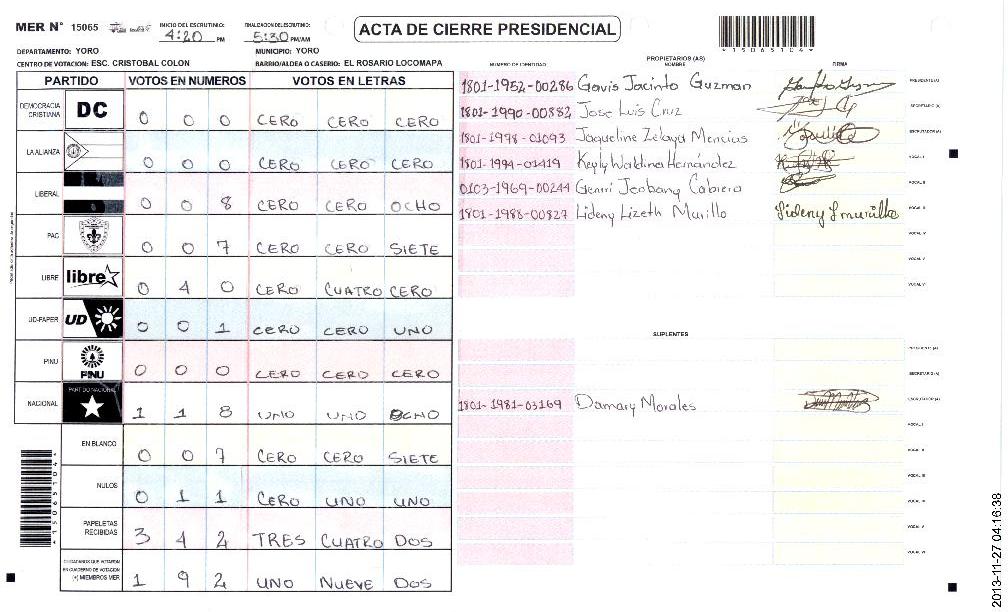 MER N° 15065
INICIO DEL ESCRUTINIO: 4:20 PM
FINALIZACION DEL ESCRUTINIO: 5:30 PM/AM
ACTA DE CIERRE PRESIDENCIAL
DEPARTAMENTO: YORO
MUNICIPIO: YORO
CENTRO DE VOTACION: ESC. CRISTOBAL COLON
BARRIO/ALDEA O CASERIO: EL ROSARIO LOCOMAPA
PARTIDO VOTOS EN NUMEROS VOTOS EN LETRAS
DEMOCRACIA CRISTIANA DC 0 0 0 CERO CERO CERO
LA ALIANZA 0 0 0 CERO CERO CERO
LIBERAL 0 0 8 CERO CERO OCHO
PAC 0 0 7 CERO CERO SIETE
LIBRE libre 0 4 0 CERO CUATRO CERO
UD-FAPER UD 0 0 1 CERO CERO UNO
PINU PINU 0 0 0 CERO CERO CERO
NACIONAL PARTIDO NACIONAL 1 1 8 UNO UNO OCHO
EN BLANCO 0 0 7 CERO CERO SIETE
NULOS 0 1 1 CERO UNO UNO
PAPELETAS RECIBIDAS 3 4 2 TRES CUATRO DOS
CIUDADANOS QUE VOTARON EN CUADERNO DE VOTACION (+) MIEMBROS MER 1 9 2 UNO NUEVE DOS
PROPIETARIOS (AS)
NUMERO DE IDENTIDAD NOMBRE FIRMA
1801-1952-00286 Gavis Jacinto Guzman PRESIDENTE(A)
1801-1990-00882 Jose Luis Cruz SECRETARIO (A)
1801-1998-01093 Jaqueline Zelaya Mencias ESCRUTADOR(A)
1801-1994-01419 Keyly Waldina Hernández VOCAL I
0103-1969-00244 Genri Jeobany Cabrera VOCAL II
1801-1988-00827 Lideny Lizeth Murillo Lideny L murillo
VOCAL IV
VOCAL V
VOCAL VI
SUPLENTES
PRESIDENTE (A)
SECRETARIO (A)
1801-1981-03169 Damary Morales ESCRUTADOR (A)
VOCAL I
VOCAL II
VOCAL III
VOCAL IV
VOCAL V
VOCAL VI
*15065104*
*15065104*
2013-11-27 04:16:38